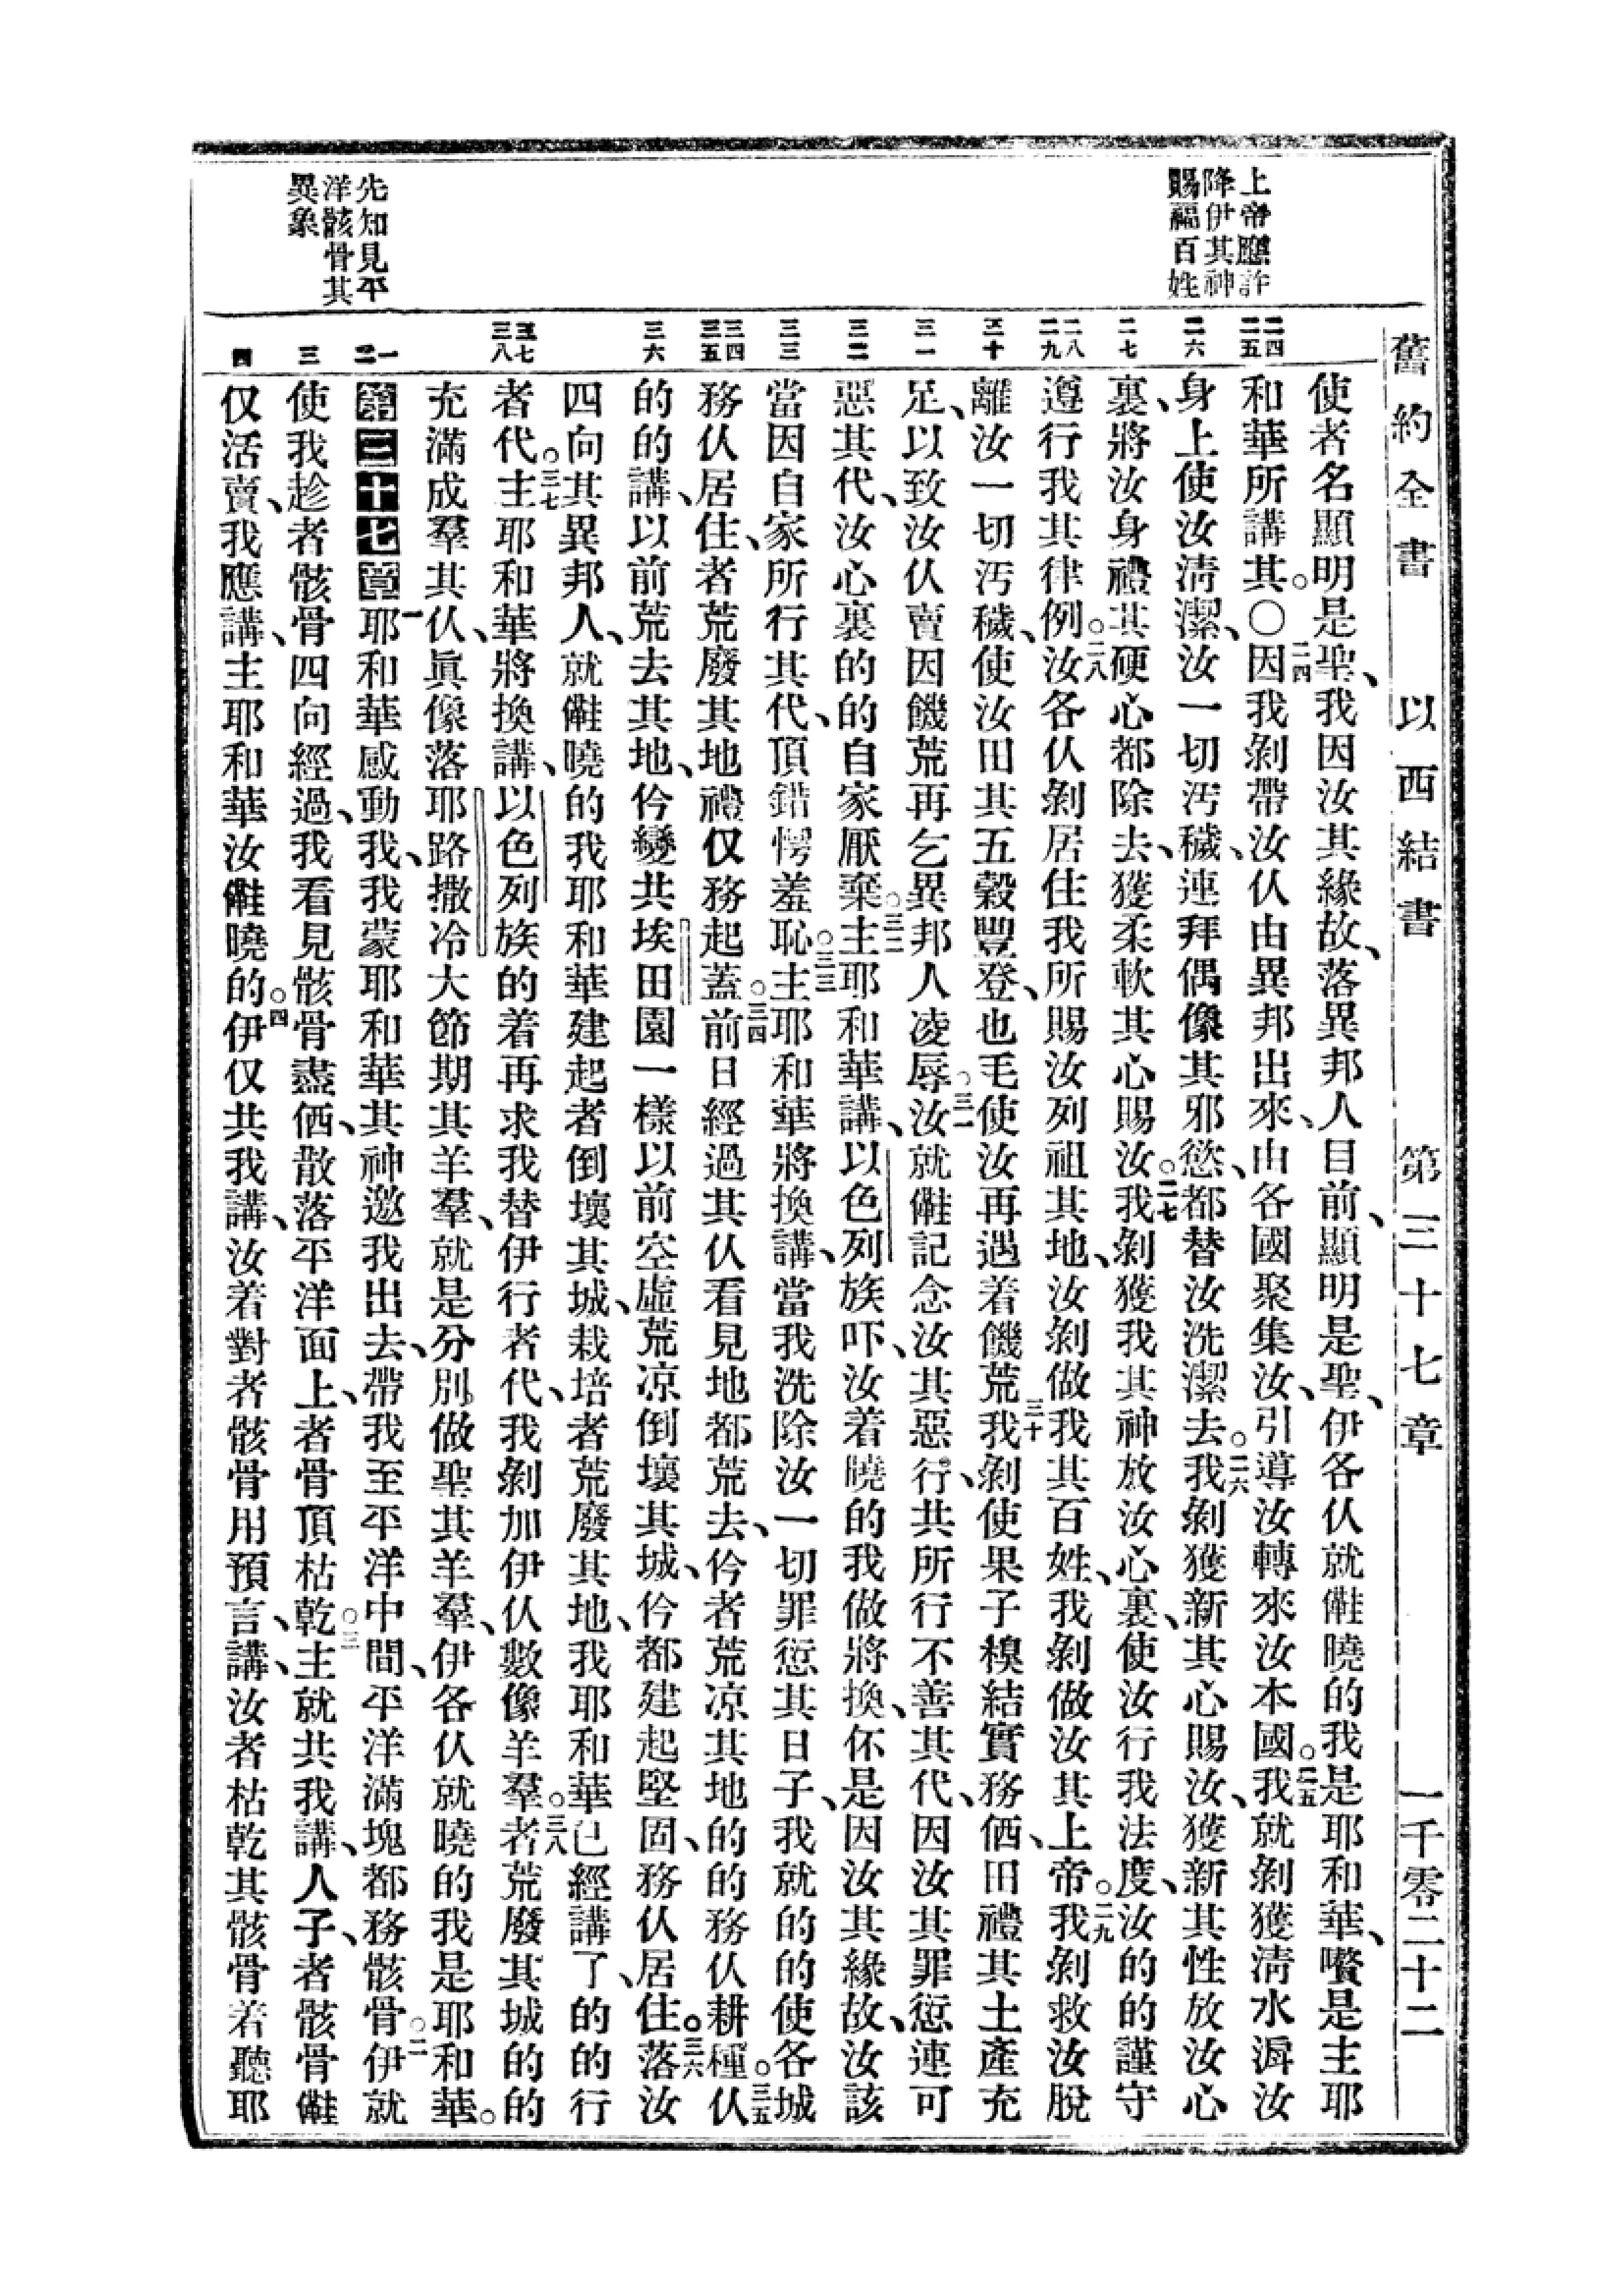 舊約全書 以西結書 第三十七章 一千零二十二
上帝應許
降伊其神
賜福百姓
先知見平
洋骸骨其
異象
二四
二五
二六
二七
二八
二九
三十
三一
三二
三三
三四
三五
三六
三七
三八
一
二
三
四
使者名顯明是聖、我因汝其緣故、落異邦人目前、顯明是聖、伊各仈就㑚曉的我是耶和華、嚽是主耶
和華所講其。〇二四因我剝帶汝仈由異邦出來、由各國聚集汝、引導汝轉來汝本國。二五我就剝獲淸水漘汝
身上使汝淸潔、汝一切汚穢、連拜偶像其邪慾、都替汝洗潔去。二六我剝獲新其心賜汝、獲新其性放汝心
裏、將汝身禮其硬心都除去、獲柔軟其心賜汝。二七我剝獲我其神放汝心裏、使汝行我法度、汝的的謹守
遵行我其律例。二八汝各仈剝居住我所賜汝列祖其地、汝剝做我其百姓、我剝做汝其上帝。二九我剝救汝脫
離汝一切汚穢、使汝田其五穀豐登、也毛使汝再遇着饑荒三十我剝使果子模結實務価、田禮其土產充
足、以致汝仈賣因饑荒再乞異邦人凌辱。三一汝就㑚記念汝其惡行、共所行不善其代、因汝其罪愆連可
惡其代、汝心裏的的自家厭棄。三二主耶和華講、以色列族吓、汝着曉的我做將換、伓是因汝其緣故、汝該
當因自家所行其代、頂錯愕羞恥。三三主耶和華將換講、當我洗除汝一切罪愆其日子、我就的的使各城
務仈居住、者荒廢其地禮仅務起蓋。三四前日經過其仈看見地都荒去、仱者荒凉其地的的務仈耕種。三五仈
的的講、以前荒去其地、仱變共埃田園一樣以前空虛荒凉倒壞其城、仱都建起堅固、務仈居住。三六落汝
四向其異邦人、就㑚曉的我耶和華建起者倒壞其城、栽培者荒廢其地、我耶和華已經講了、的的行
者代。三七主耶和華將換講、以色列族的着再求我替伊行者代、我剝加伊仈數像羊羣。三八者荒廢其城的的
充滿成羣其仈、眞像落耶路撒冷大節期其羊羣、就是分別做聖其羊羣、伊各仈就曉的我是耶和華。
第三十七章 一耶和華感動我、我蒙耶和華其神邀我出去、帶我至平洋中間、平洋滿塊都務骸骨。二伊就
使我趁者骸骨四向經過、我看見骸骨盡価、散落平洋面上、者骨頂枯乾。三主就共我講、人子、者骸骨㑚
仅活賣、我應講、主耶和華汝㑚曉的。四伊仅共我講、汝着對者骸骨用預言、講、汝者枯乾其骸骨着聽耶